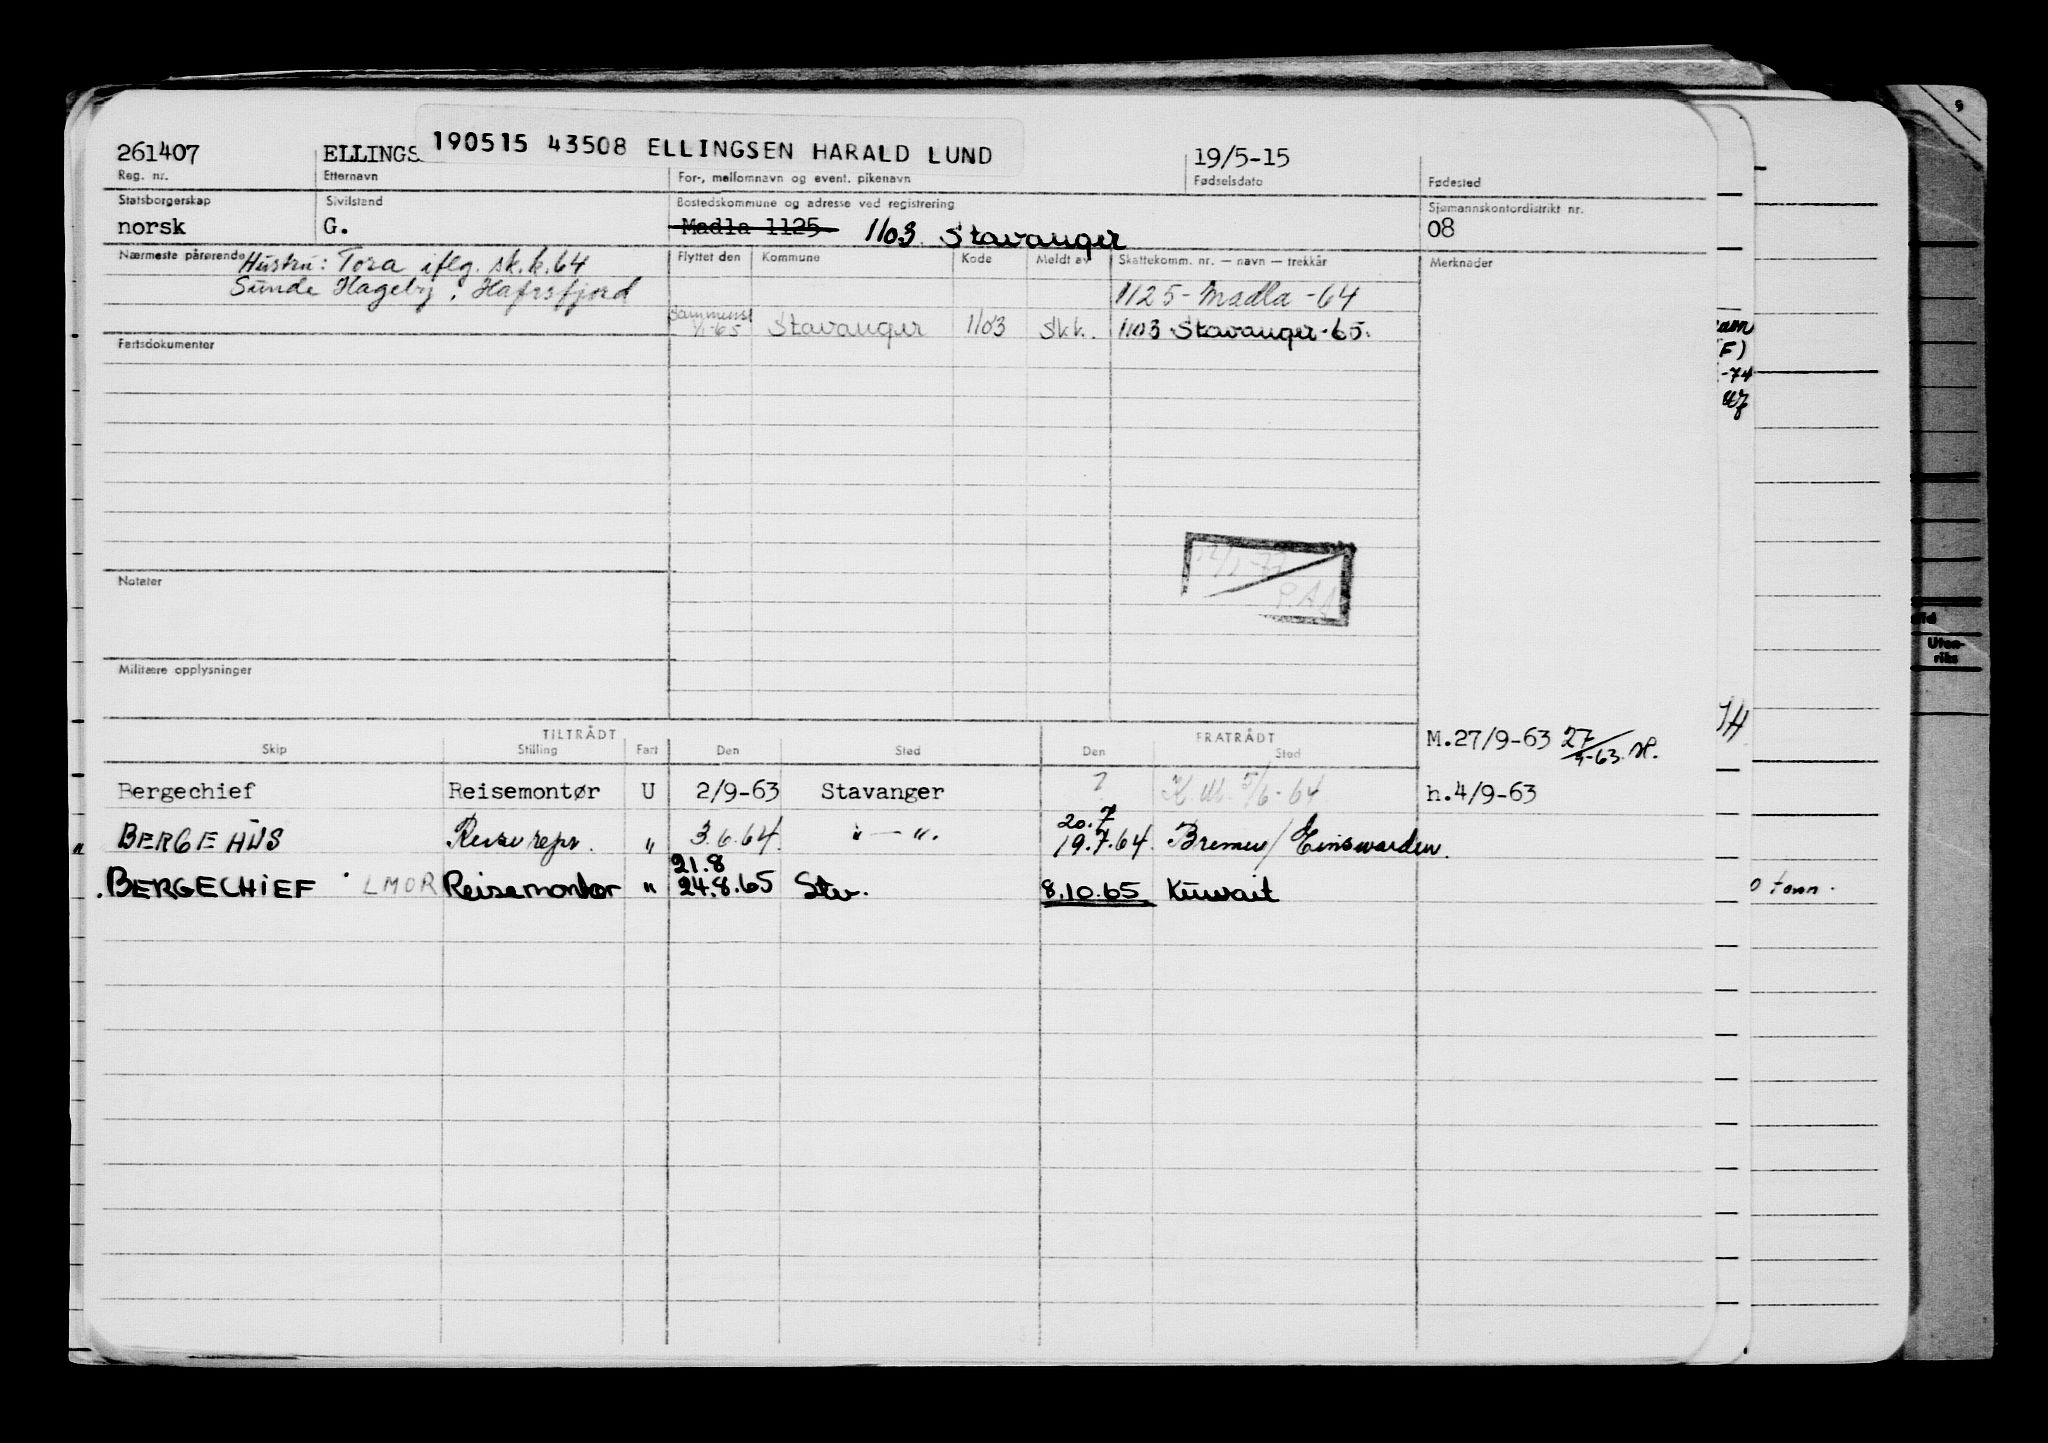 261407 ELLINGS 190515 43508 ELLINGSEN HARALD LUND 19/5-15
Reg. nr. Etternavn For-, mellomnavn og event. pikenavn Fødselsdato Fødested
Statsborgerskap Sivilstand Bostedskommune og adresse ved registrering Sjømannskontordistrikt nr.
norsk G. Madla 1125 1103 Stavanger 08
Nærmeste pårørende Hustru: Tora iflg. sk.k. 64 Flyttet den Kommune Kode Meldt av Skattekomm. nr. — navn — trekkår Merknader
Sunde Hageby, Hafrsfjord 1125 - Madla - 64
1/1-65 Stavanger 1103 Skk. 1103 Stavanger - 65.
Fartsdokumenter
Notater
Militære opplysninger
TILTRÅDT FRATRÅDT
Skip Stilling Fart Den Sted Den Sted
M.27/9-63 27/9-63
Bergechief Reisemontør U 2/9-63 Stavanger ? 5/6-64 h.4/9-63
20.7
BERGEHUS Reiserepr. " 3.6.64 " — ". 19.7.64. Bremen/Einswarden.
21.8
BERGECHIEF LMOR Reisemontør " 24.8.65 Stv. 8.10.65 Kuwait
(F)
-74
Uten-
riks
0 tonn.